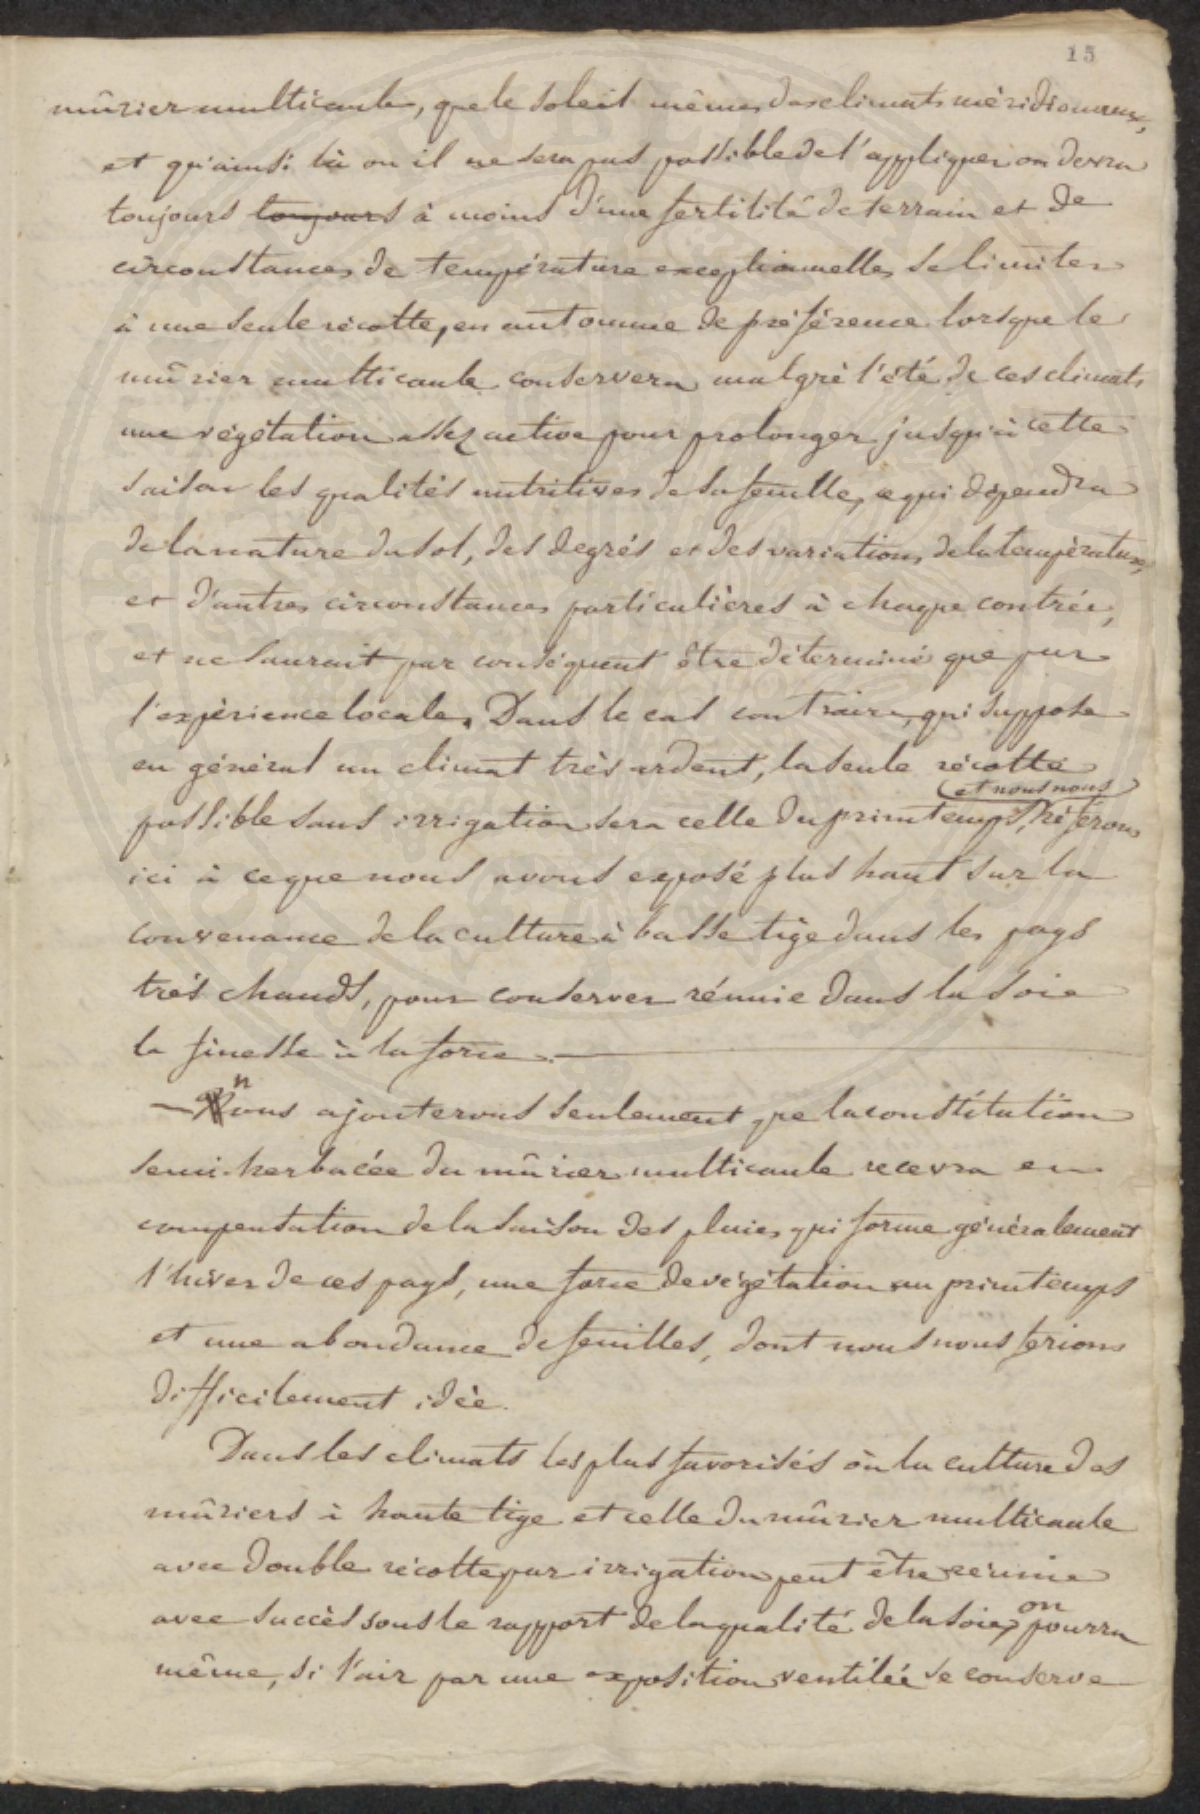 15
mûrier multicaule, que le soleil même des climats méridionaux,
et qu'ainsi là ou il ne sera pas possible de l'appliquer on devra
toujours toujours à moins d'une fertilité de terrain et de
circonstances de température exceptionnelles se limiter
à une seule récolte, en automne de préférence lorsque le
mûrier multicaule conservera malgré l'été de ces climats
une végétation assez active pour prolonger jusqu'à cette
saison les qualités nutritives de sa feuille, ce qui dépendra
de la nature du sol, des degrés et des variations de la température,
et d'autres circonstances particulières à chaque contrée,
et ne saurait par conséquent être déterminé que par
l'expérience locale. Dans le cas contraire, qui suppose
en général un climat très ardent, la seule récolte
et nous nous
possible sans irrigation sera celle du printemps, référons
ici à ce que nous avons exposé plus haut sur la
convenance de la culture à basse tige dans les pays
très chauds, pour conserver réunie dans la soie
la finesse à la force. —
— nous ajouterons seulement que la constitution
semi-herbacée du mûrier multicaule recevra en
compensation de la saison des pluies qui forme généralement
l'hiver de ces pays, une force de végétation au printemps
et une abondance de feuilles, dont nous nous ferions
difficilement idée.
Dans les climats les plus favorisés où la culture des
mûriers à haute tige et celle du mûrier multicaule
avec double récolte par irrigation peut être réunie
avec succès sous le rapport de la qualité de la soie, on pourra
même, si l'air par une exposition ventilée se conserve